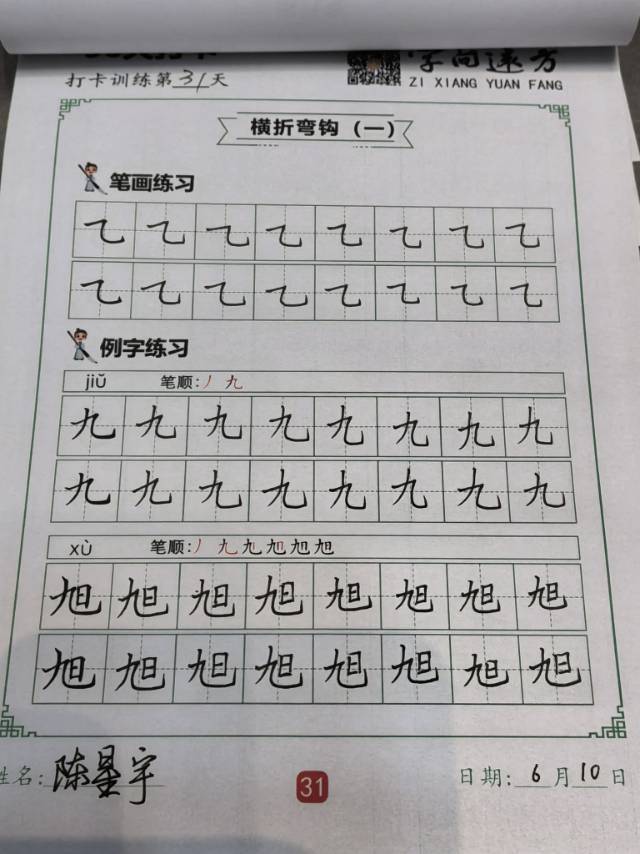 打卡训练第31天
字向远方
ZI XIANG YUAN FANG
横折弯钩（一）
笔画练习
乁 乁 乁 乁 乁 乁 乁 乁
乁 乁 乁 乁 乁 乁 乁 乁
例字练习
jiǔ 笔顺:丿 九
九 九 九 九 九 九 九 九
九 九 九 九 九 九 九 九
xù 笔顺:丿 九 九 旭 旭 旭
旭 旭 旭 旭 旭 旭 旭 旭
旭 旭 旭 旭 旭 旭 旭 旭
姓名:陈星宇
31
日期:6月10日